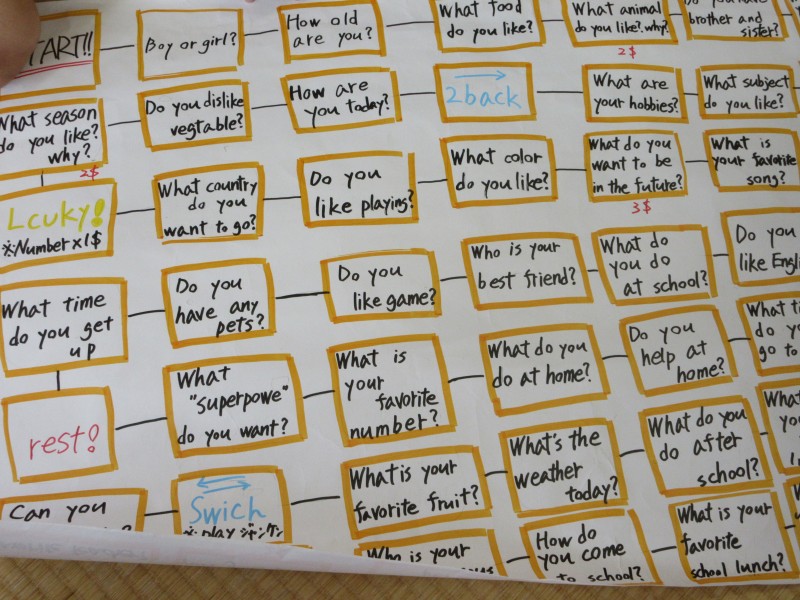 TART!!
Boy or girl?
How old
are you?
What food
do you like?
What animal
do you like?.why?
2$
brother and
sister?
What season
do you like?
why?
2$
Do you dislike
vegtable?
How are
you today?
2back
What are
your hobbies?
What subject
do you like?
Lcuky!
※Number×1$
What country
do you
want to go?
Do you
like playing?
What color
do you like?
What do you
want to be
in the future?
3$
What is
your favorite
song?
What time
do you get
up
Do you
have any
pets?
Do you
like game?
Who is your
best friend?
What do
you do
at school?
Do you
like Engli
rest!
What
"superpowe"
do you want?
What is
your
favorite
number?
What do you
do at home?
Do you
help at
home?
What ti
do y
go to
Can you
Swich
What is your
favorite fruit?
What's the
weather
today?
What do you
do after
school?
What
yo
Who is your
How do
you come
to school?
What is your
favorite
school lunch?